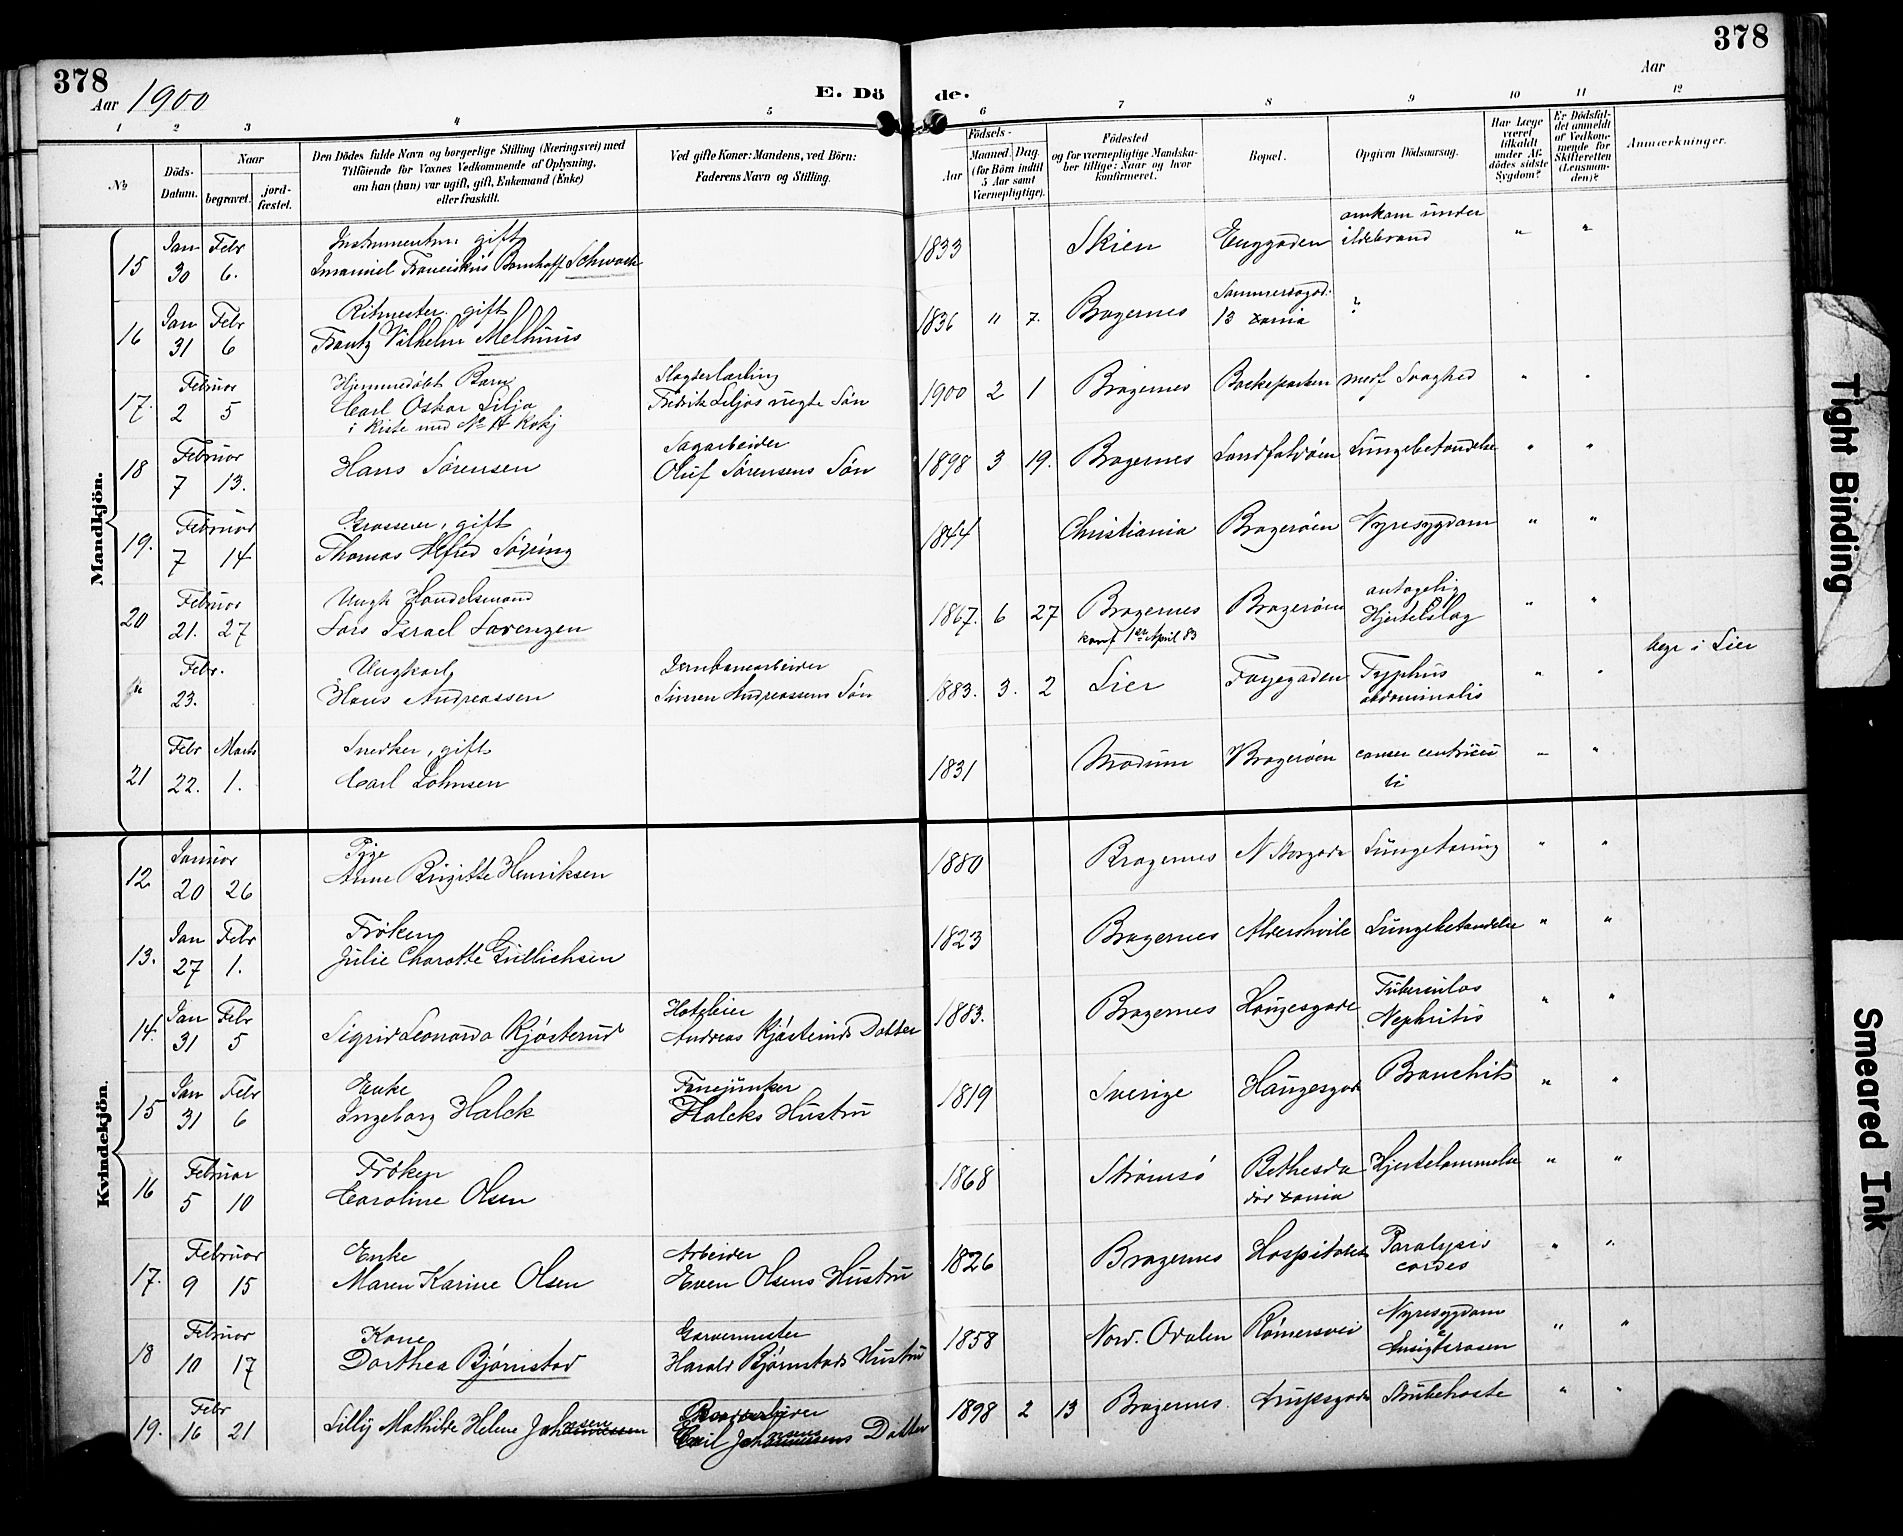 378
378
Aar 1900
E. Dö de.
Aar
1 2 3 4 5 6 7 8 9 10 11 12
No
Döds-Datum.
Naar
begravet.
jord-fæstet.
Den Dödes fulde Navn og borgerlige Stilling (Næringsvei) med
Tilföiende for Voxnes Vedkommende af Oplysning,
om han (hun) var ugift, gift, Enkemand (Enke)
eller fraskilt.
Ved gifte Koner: Mandens, ved Börn:
Faderens Navn og Stilling.
Födsels-
Aar
Maaned. Dag.
(for Börn indtil
5 Aar samt
Værnepligtige).
Födested
og for værnepligtige Mandska-
ber tillige: Naar og hvor
konfirmeret.
Bopæl.
Opgiven Dödsaarsag.
Har Læge
været
tilkaldt
under Af-
dödes sidste
Sygdom?
Er Dödsfal-
det anmeldt
af Vedkom-
mende for
Skifteretten
(Lensman-
den)?
Anmærkninger.
Mandkjön.
15 Jan 30 Febr 6. gift Franciskus Schwach 1833 Skien Enggaden omkom under ildebrand " "
16 Jan 31 Febr 6 Ritmester. gift Frantz Vilhelm Melhuus 1836 " 7. Bragernes 13 Xania ?
17. Februar 2 5 Hjemmedøbt Barn Carl Oskar Lilja i Kiste med No Slagterlærling Fredrik Liljas uægte Søn 1900 2 1 Bragernes Bakkeparken medf Svaghed " "
18 Februar 7 13. Hans Sørensen Sagarbeider Oluf Sørensens Søn 1898 3 19. Bragernes Landfaløien Lungebetændelse " "
19. Februar 7 14 Grosserer, gift Thomas Alfred Søring 1844 Christiania Bragerøen Nyresygdom " "
20 Februar 21. 27 Ungk Handelsmand Lars Israel Lorenzen 1867. 6 27 Bragernes konf 1ste April 83 Bragerøen antagelig Hjerteslag " "
Febr. 23. Ungkarl Hans Andreassen Jernbanearbeider Simen Andreassens Søn 1883. 3. 2 Lier Fayegaden Typhus abdominalis " " begr i Lier
21 Febr 22. Marts 1. Snedker, gift Carl Johnsen 1831 Modum Bragerøen cancer ventriculi " "
Kvindekjön.
12 Januar 20 26 Pige Anne Birgitte Henriksen 1880 Bragernes N Storgade Lungetæring " "
13. Jan 27 Febr 1. Frøken Julie Charotte Gullichsen 1823 Bragernes Aldershvile Lungebetændelse " "
14. Jan 31 Febr 5 Sigrid Leonarda Kjøsterud Andreas Kjøsteruds Datter 1883. Bragernes Haugesgade Tuberculøs Nephritis " "
15 Jan 31 Febr 6 Enke Ingeborg Halck Fanejunker Halcks Hustru 1819 Sverige Haugesgade Bronchit " "
16 Februar 5 10 Frøken Caroline Olsen 1868 Strømsø Bethesda Xania Hjertelammelse " "
17. Februar 9 15 Enke Maren Karine Olsen Arbeider Even Olsens Hustru 1826 Bragernes Hospitalet Paralysis cordis " "
18 Februar 10 17 Kone Dorthea Bjørnstad Garvermester Harald Bjørnstads Hustru 1858 Nord. Odalen Rømersvei Nyresygdom & Ansigtsrosen " "
19. Febr 16 21 Lilly Mathilde Helene Johansen Emil Johansens Datter 1898 2 13 Bragernes Krupsgade Strubehoste " "
Tight Binding
Smeared Ink